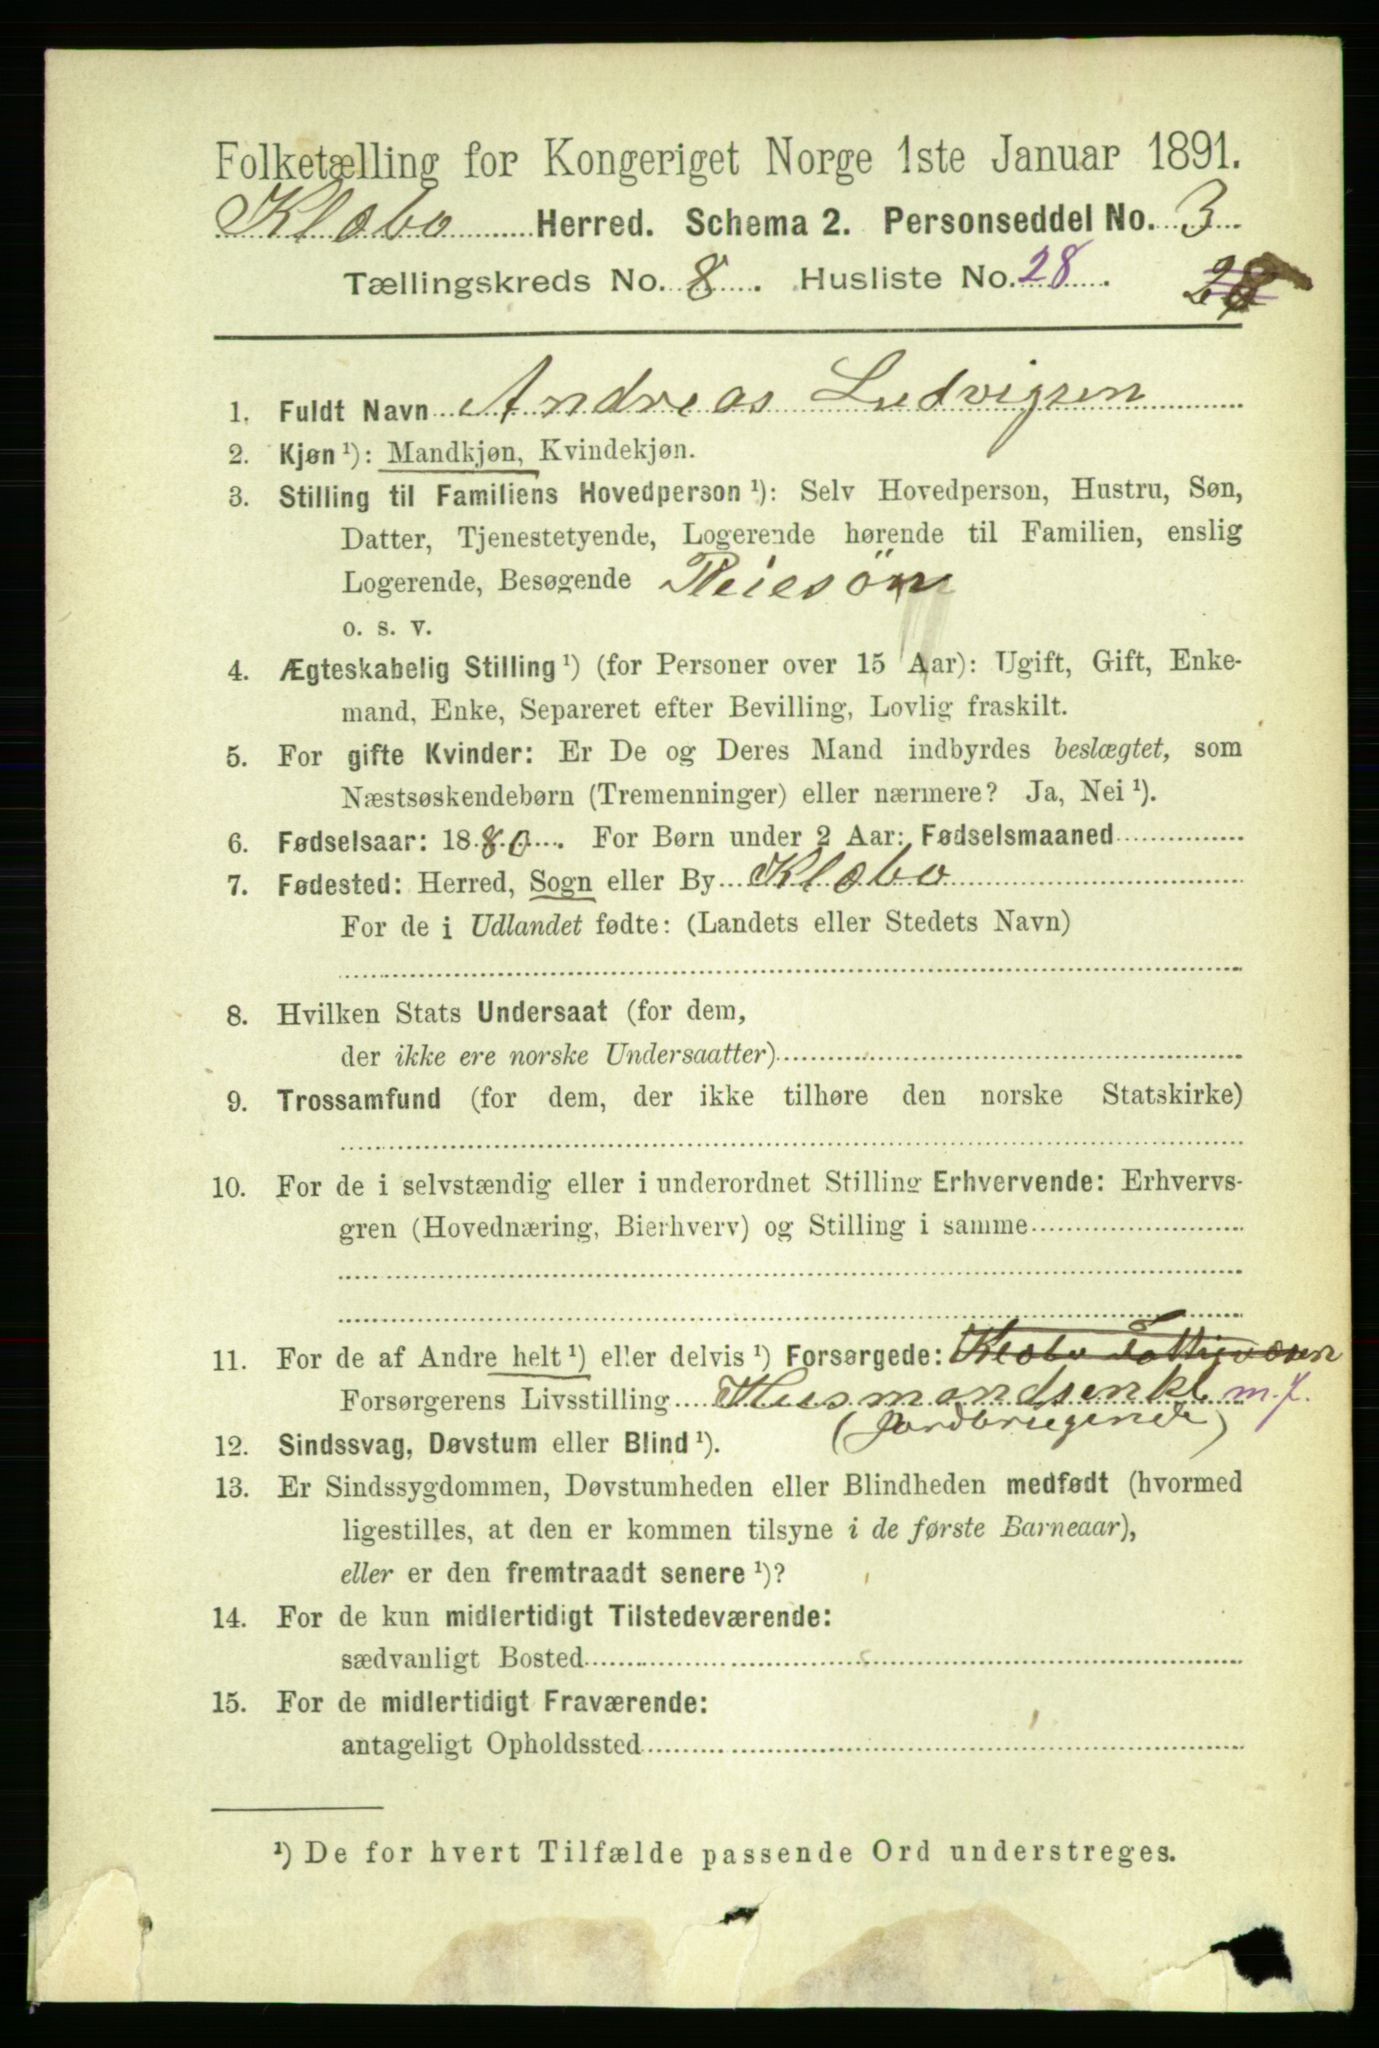 Folketælling for Kongeriget Norge 1ste Januar 1891.
Klæbo Herred. Schema 2. Personseddel No. 3
Tællingskreds No. 8. Husliste No. 28.
1. Fuldt Navn Andreas Ludvigsen
2. Kjøn ¹): Mandkjøn, Kvindekjøn.
3. Stilling til Familiens Hovedperson ¹): Selv Hovedperson, Hustru, Søn,
Datter, Tjenestetyende, Logerende hørende til Familien, enslig
Logerende, Besøgende Pleiesøn
o. s. v.
4. Ægteskabelig Stilling ¹) (for Personer over 15 Aar): Ugift, Gift, Enke-
mand, Enke, Separeret efter Bevilling, Lovlig fraskilt.
5. For gifte Kvinder: Er De og Deres Mand indbyrdes beslægtet, som
Næstsøskendebørn (Tremenninger) eller nærmere? Ja, Nei ¹).
6. Fødselsaar: 1880. For Børn under 2 Aar: Fødselsmaaned
7. Fødested: Herred, Sogn eller By Klæbo
For de i Udlandet fødte: (Landets eller Stedets Navn)
8. Hvilken Stats Undersaat (for dem,
der ikke ere norske Undersaatter)
9. Trossamfund (for dem, der ikke tilhøre den norske Statskirke)
10. For de i selvstændig eller i underordnet Stilling Erhvervende: Erhvervs-
gren (Hovednæring, Bierhverv) og Stilling i samme
11. For de af Andre helt ¹) eller delvis ¹) Forsørgede: Klæbo Fattigvæsen
Forsørgerens Livsstilling Husmandsenke m. J.
(Jordbrugende)
12. Sindssvag, Døvstum eller Blind ¹).
13. Er Sindssygdommen, Døvstumheden eller Blindheden medfødt (hvormed
ligestilles, at den er kommen tilsyne i de første Barneaar),
eller er den fremtraadt senere ¹)?
14. For de kun midlertidigt Tilstedeværende:
sædvanligt Bosted
15. For de midlertidigt Fraværende:
antageligt Opholdssted
¹) De for hvert Tilfælde passende Ord understreges.